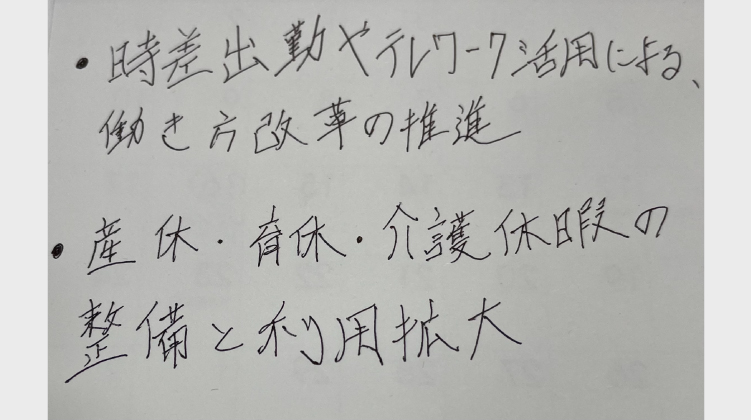 ・時差出勤やテレワーク活用による、
働き方改革の推進
・産休・育休・介護休暇の
整備と利用拡大